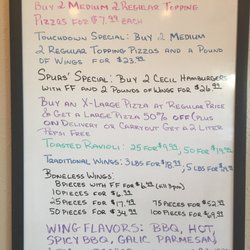 Buy 2 Medium 2 Regular Topping
Pizzas for $7.99 each
Touchdown Special: Buy 2 Medium
2 Regular Topping Pizzas and a Pound
of Wings for $23.99
Spurs' Special: Buy 2 Cecil Hamburgers
with FF and 2 Pounds of Wings for $26.99
Buy an X-Large Pizza at Regular Price
& Get a Large Pizza 50% off (Plus
on Delivery or Carryout Get a 2 Liter
Pepsi Free
Toasted Ravioli: 25 for $9.99, 50 for $19.99
Traditional Wings: 3 lbs for $18.99, 5 lbs
Boneless Wings:
8 pieces with FF for $6.99
10 pieces for $6.99
25 pieces for $17.99 75 pieces for $52.99
50 pieces for $34.99 100 pieces for
Wing Flavors: BBQ, Hot,
Spicy BBQ, Garlic Parmesan